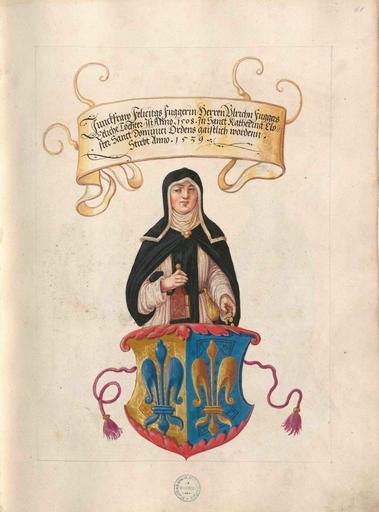 61
Junckfraw Felicitas Fuggerin Herren Ulrichn Fuggers
Eeliche Tochter, Ist Anno. 1508. zu Sanct Katharina Clo-
ster Sanct Dominici Ordens gaistlich worden,
Sterbt Anno. 1539.